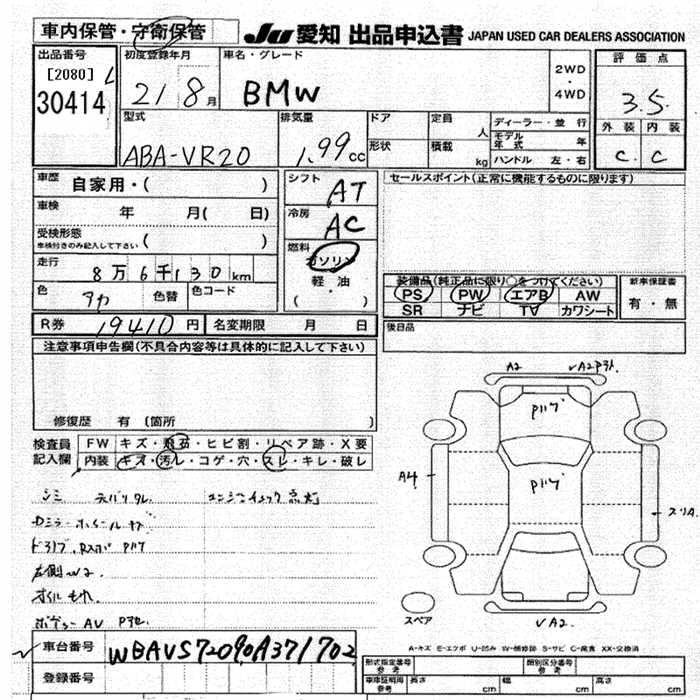 車内保管・守衛保管
JU 愛知 出品申込書 JAPAN USED CAR DEALERS ASSOCIATION
出品番号
[2080]
30414
初度登録年月
21 8月
車名・グレード
BMW
2WD
・
4WD
評価点
3.5
外装 内装
C. C
型式
ABA-VR20
排気量
1.99cc
ドア
形状
定員 人
積載 kg
ディーラー・並行
モデル年式 年
ハンドル 左・右
車歴 自家用・( )
車検 年 月( 日)
受検形態
車検付きのみ記入して下さい ( )
走行 8万6千130km
色 アカ 色替 色コード
シフト AT
冷房 AC
燃料
ガソリン
軽・油
( ・ )
セールスポイント(正常に機能するものに限ります)
装備品(純正品に限り○をつけてください)
PS PW エアB AW
SR ナビ TV カワシート
新車保証書
有・無
後日品
R券 19410円 名変期限 月 日
注意事項申告欄(不具合内容等は具体的に記入して下さい)
修復歴 有 〔箇所 〕
検査員
記入欄
FW キズ・飛石・ヒビ割・リペア跡・X要
内装 キズ・汚レ・コゲ・穴・スレ・キレ・破レ
シミ
エンジンチェック点灯
P117
左側W2
オイルもれ
ボデー AU
A2
A4
P117
P117
スリA
VA2
スペア
A-キズ E-エクボ U-凹み W-補修跡 S-サビ C-腐食 XX-交換済
車台番号 WBAVS72090A371702
登録番号
形式指定番号
参考
類別区分番号
参考
車庫証明用
参考
長さ cm 幅 cm 高さ cm